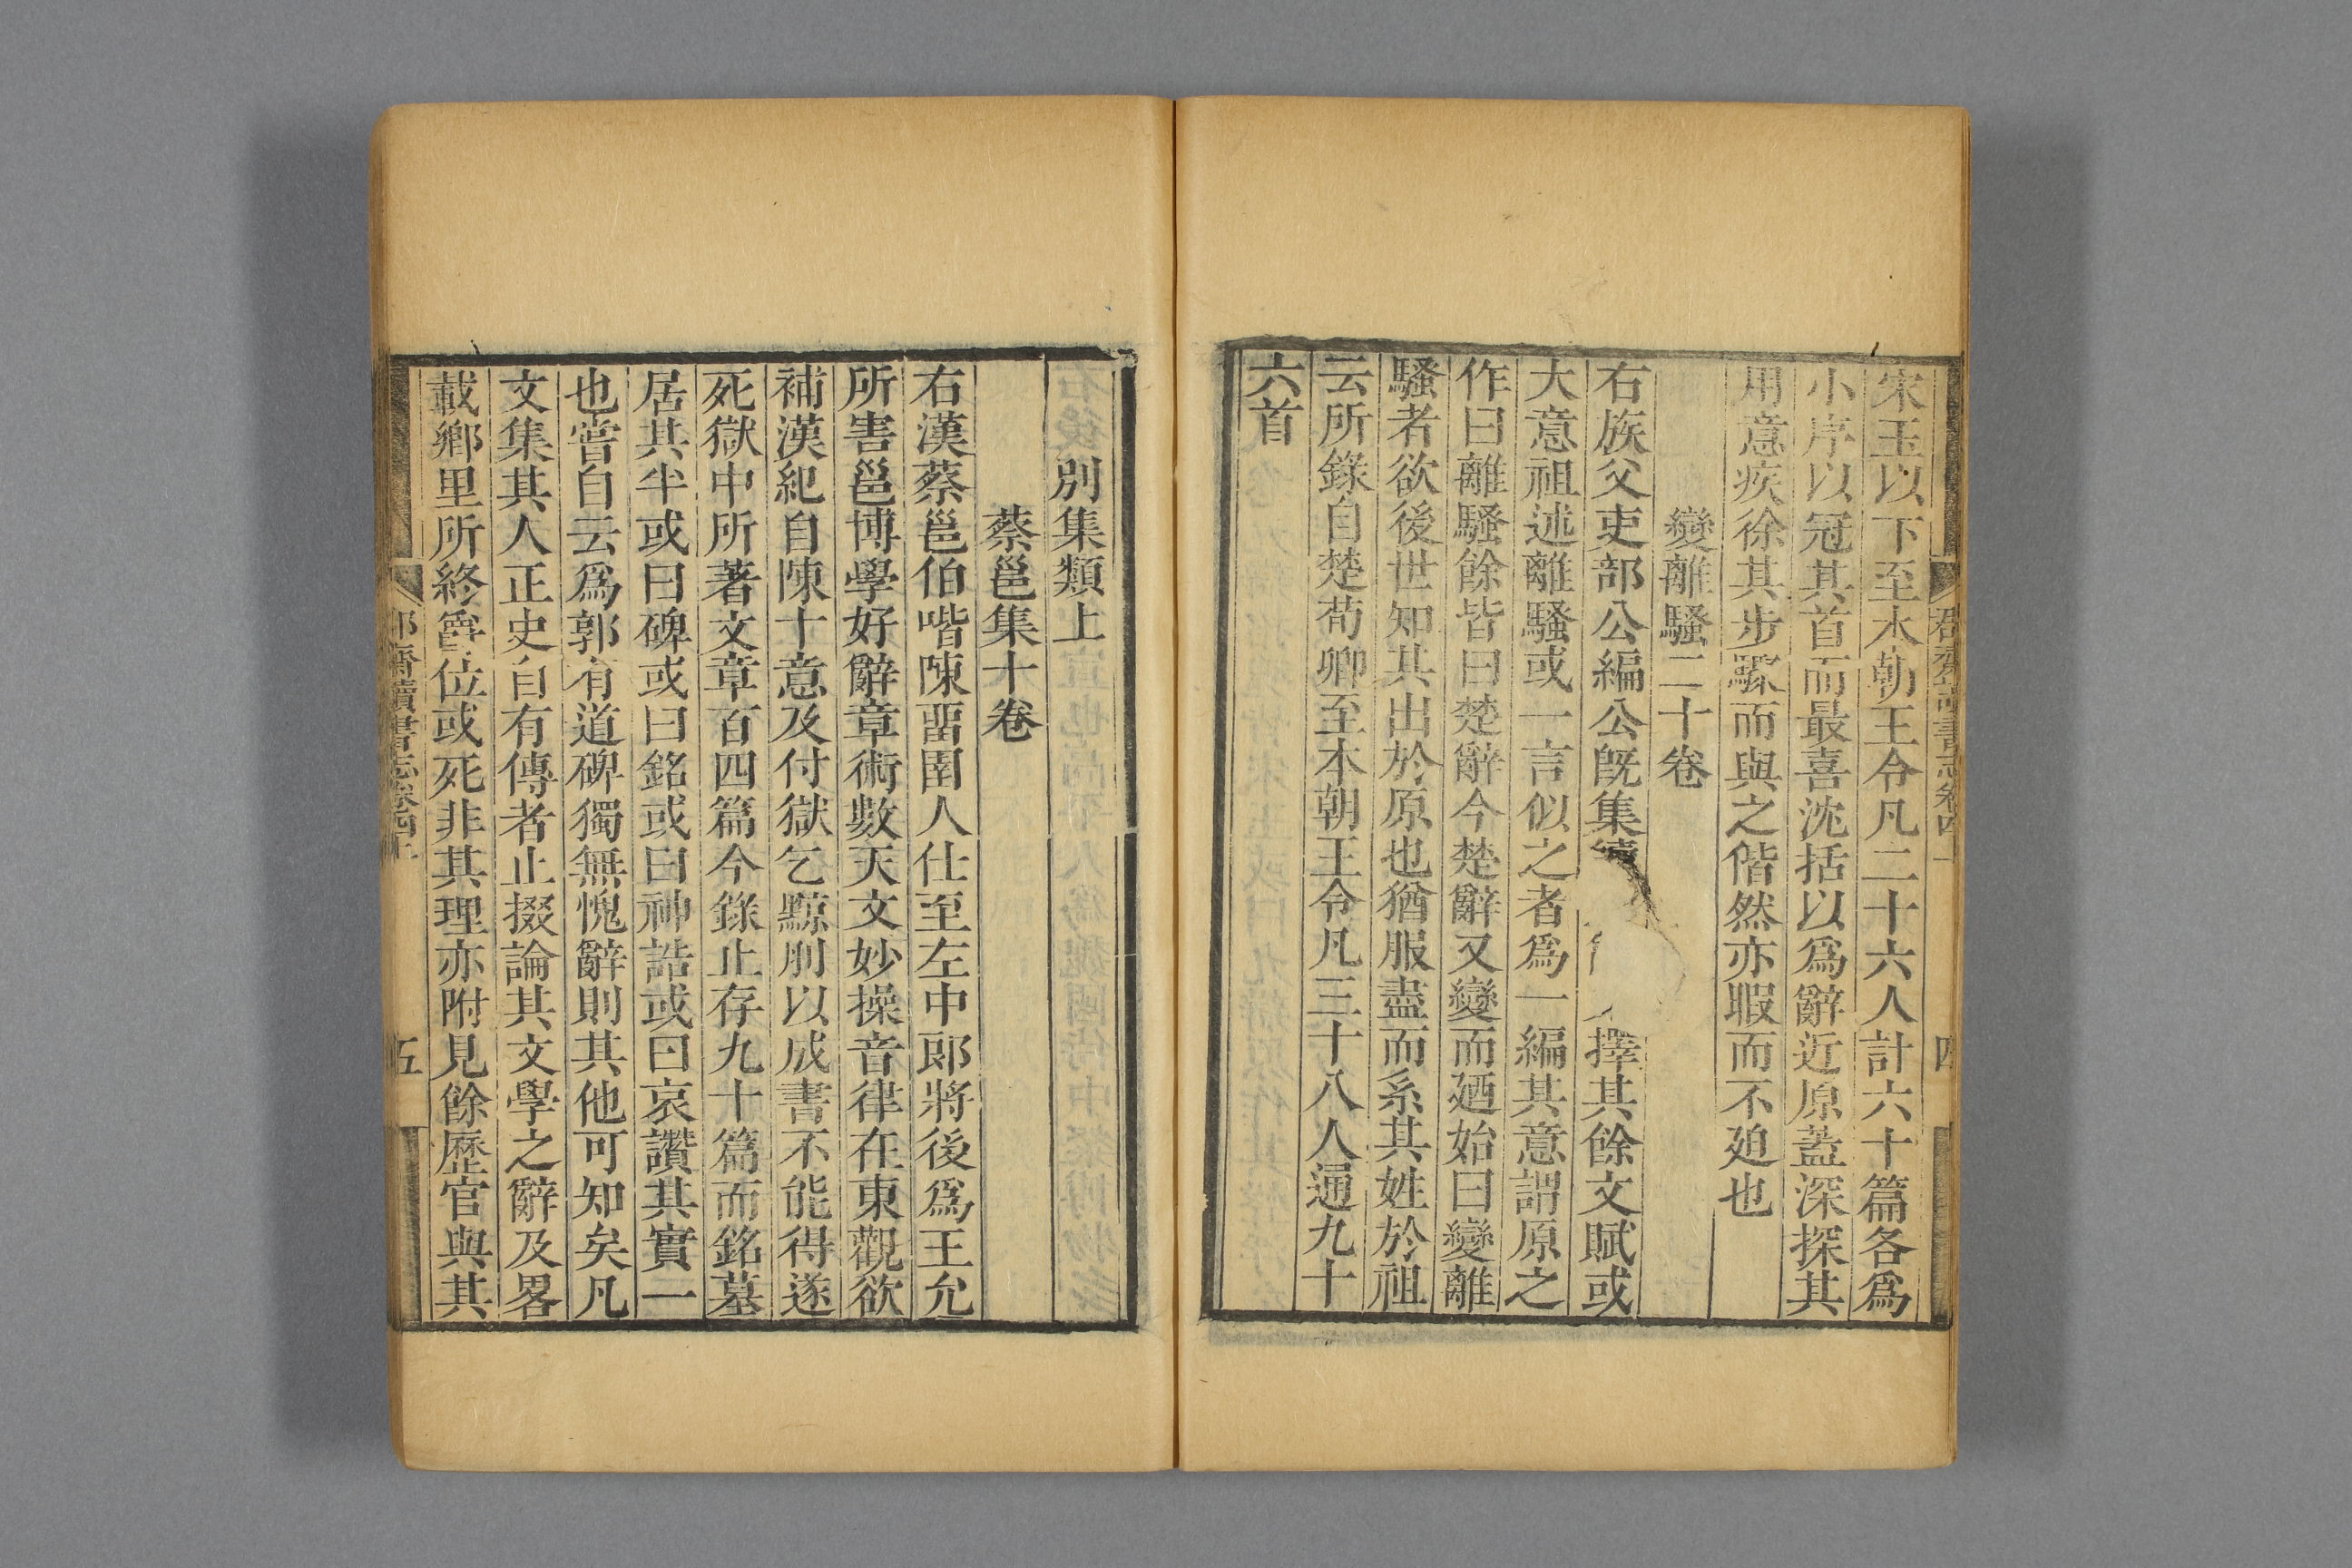 宋玉以下至本朝王令凡二十六人計六十篇各爲
小序以冠其首而最喜沈括以爲辭近原蓋深探其
用意疾徐其步驟而與之偕然亦暇而不廹也
變離騷二十卷
右族父吏部公編公旣集續擇其餘文賦或
大意祖述離騷或一言似之者爲一編其意謂原之
作曰離騷餘皆曰楚辭今楚辭又變而廼始曰變離
騷者欲後世知其出於原也猶服盡而系其姓於祖
云所錄自楚荀卿至本朝王令凡三十八人通九十
六首
別集類上
蔡邕集十卷
右漢蔡邕伯喈陳畱圉人仕至左中郎將後爲王允
所害邕博學好辭章術數天文妙操音律在東觀欲
補漢紀自陳十意及付獄乞黥刖以成書不能得遂
死獄中所著文章百四篇今錄止存九十篇而銘墓
居其半或曰碑或曰銘或曰神誥或曰哀讚其實一
也嘗自云爲郭有道碑獨無愧辭則其他可知矣凡
文集其人正史自有傳者止掇論其文學之辭及畧
載鄉里所終爵位或死非其理亦附見餘歷官與其
郡齋讀書志卷四上
五